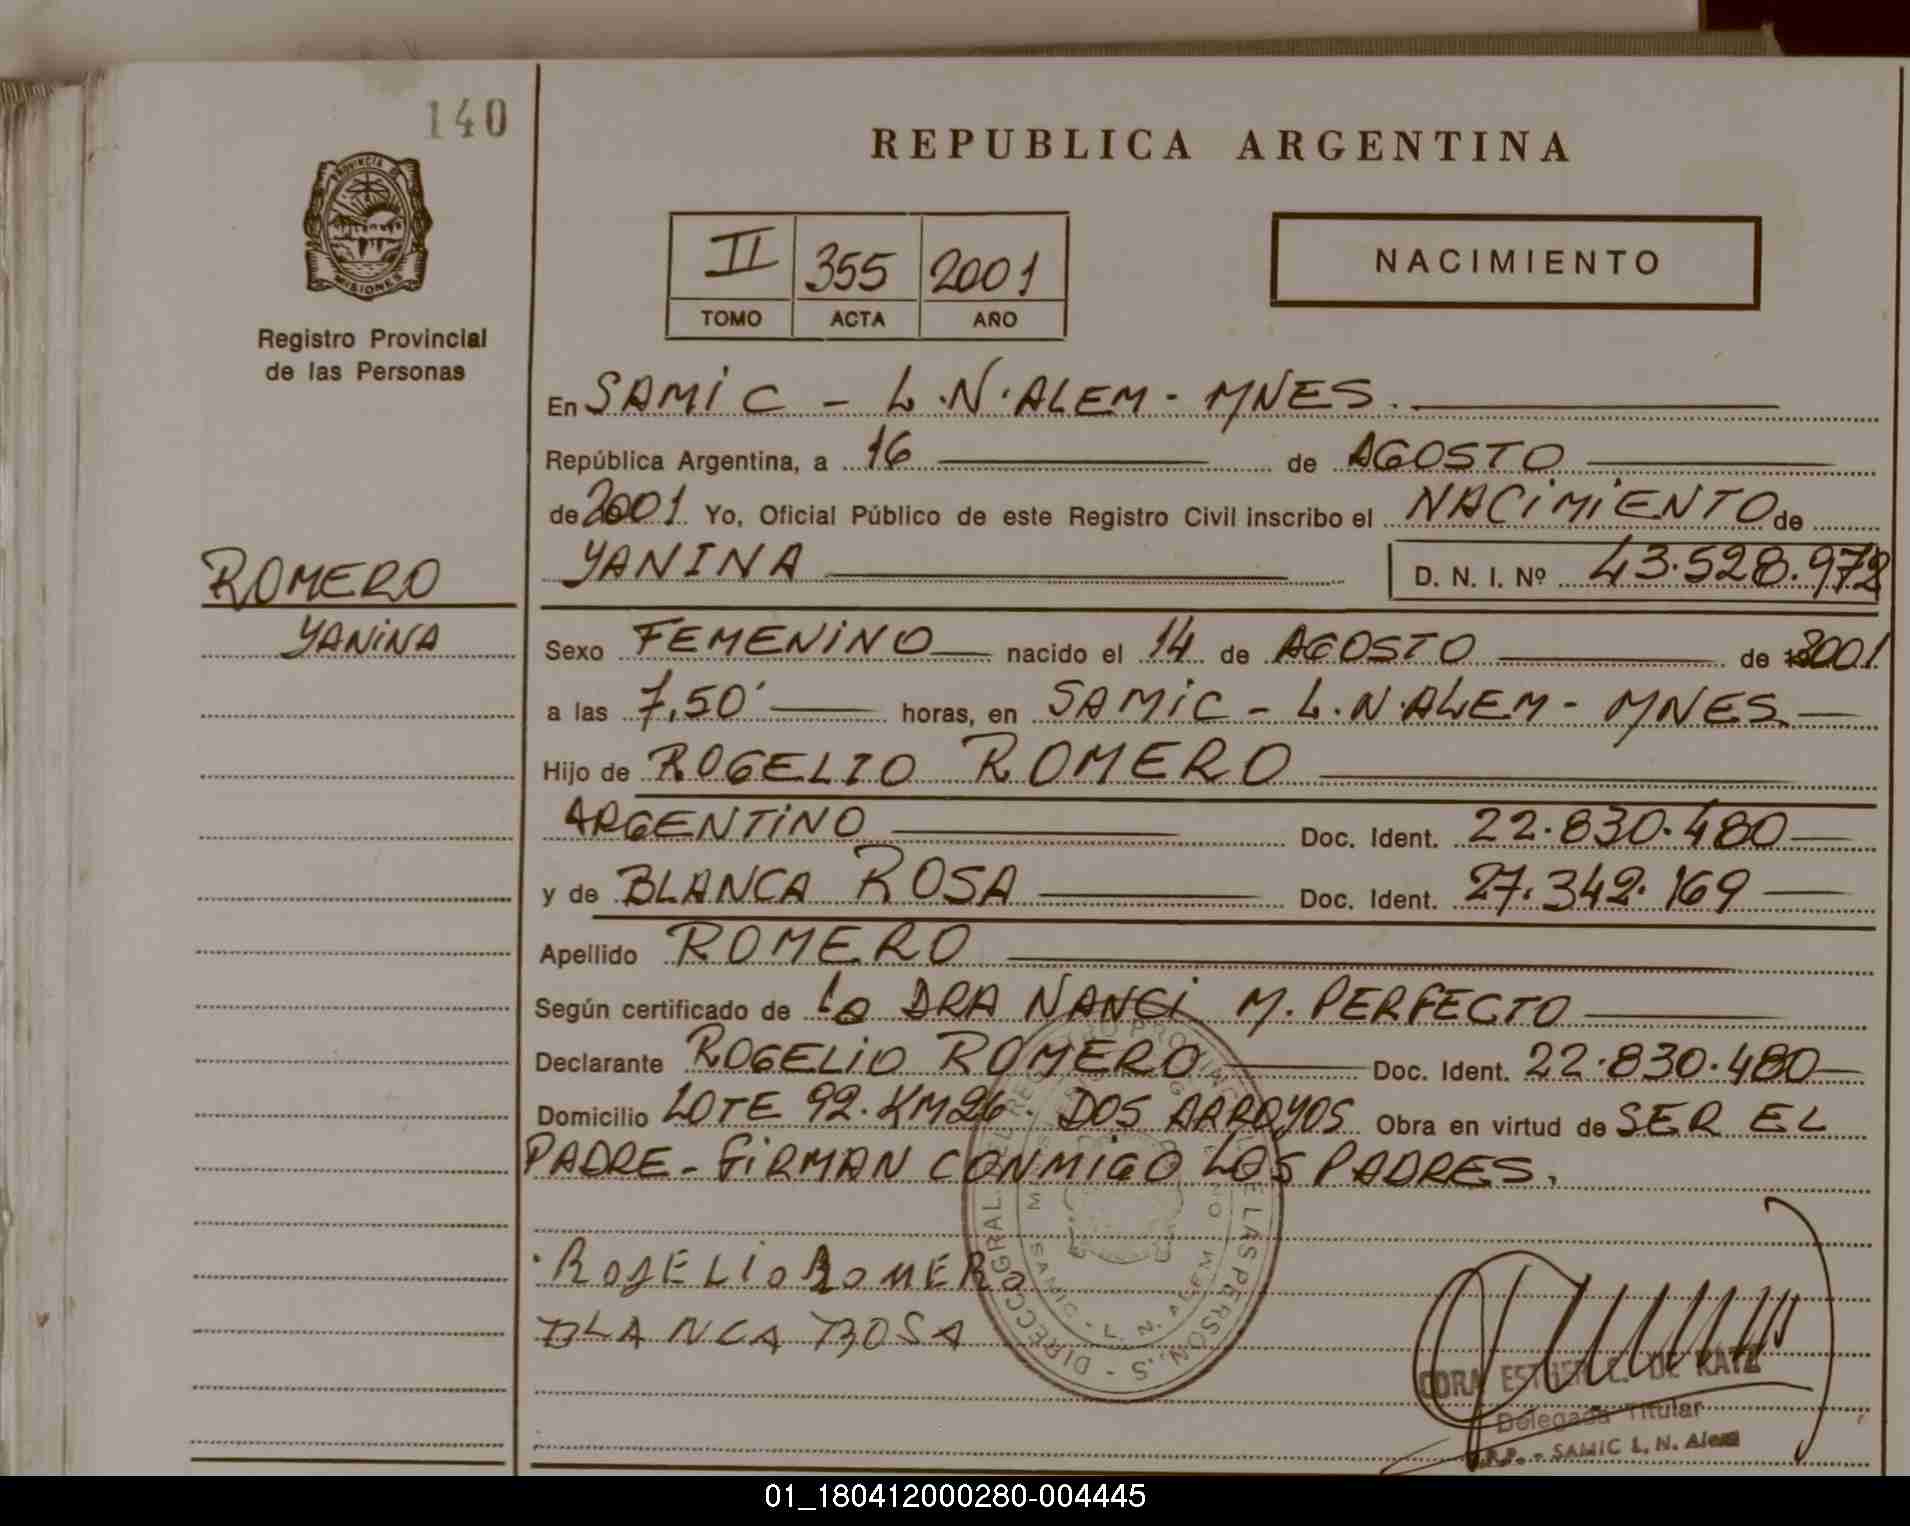 140
PROVINCIA DE
MISIONES
Registro Provincial
de las Personas
REPUBLICA ARGENTINA
II 355 2001
TOMO ACTA AÑO
NACIMIENTO
En SAMIC - L.N.ALEM - MNES.
República Argentina, a 16 de AGOSTO
de 2001 Yo, Oficial Público de este Registro Civil inscribo el NACIMIENTO de
YANINA D. N. I. Nº 43.528.972
ROMERO
YANINA
Sexo FEMENINO nacido el 14 de AGOSTO de 2001
a las 7,50' horas, en SAMIC - L.N.ALEM - MNES.
Hijo de ROGELIO ROMERO
ARGENTINO Doc. Ident. 22.830.480
y de BLANCA ROSA Doc. Ident. 27.342.169
Apellido ROMERO
Según certificado de La DRA NANCI M. PERFECTO
Declarante ROGELIO ROMERO Doc. Ident. 22.830.480
Domicilio LOTE 92. KM26. DOS ARROYOS Obra en virtud de SER EL
PADRE - FIRMAN CONMIGO LOS PADRES.
ROJELIO ROMERO
BLANCA ROSA
SAMIC - L. N. ALEM
CORA ESTHER C. DE KATZ
Delegada Titular
R.P. - SAMIC L. N. Alem
01_180412000280-004445